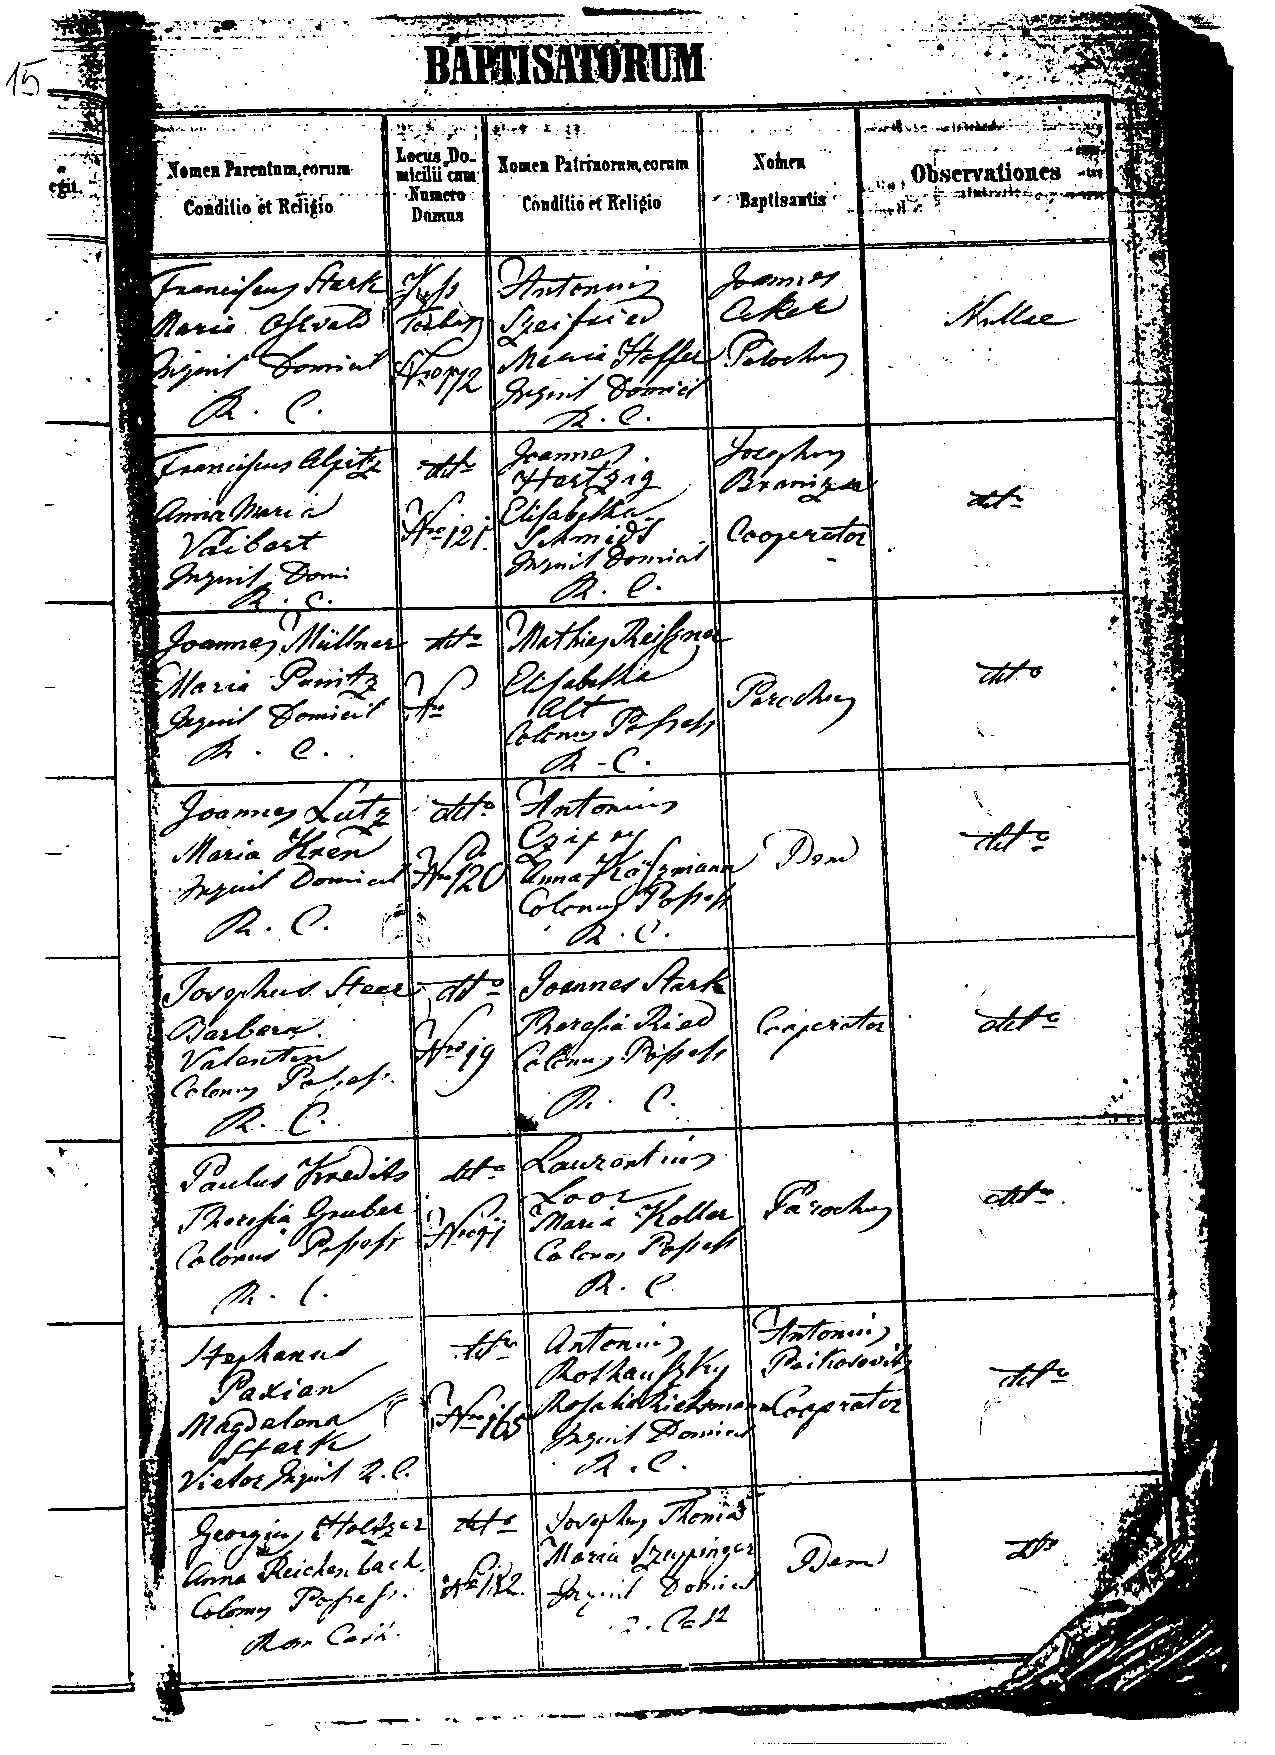 15
BAPTISATORUM
egit.
Nomen Parentum, eorum
Conditio et Religio
Locus Do-
micilii cum
Numero
Domus
Nomen Patrinorum, eorum
Conditio et Religio
Nomen
Baptisantis
Observationes
Franciscus Stark
Maria Oswald
Inquil Domicil
R. C.
Kiss
Nro 172
Antonius
Szeifried
Maria Hoffer
Inquil Domicil
R. C.
Joannes
Eker
Parochus
Nullae
Franciscus Alpitz
Anna Maria
Vaibert
Inquil Domi
R. C.
dtto
Nro 121.
Joannes
Hertzig
Elisabetha
Schmidt
Inquil Domicil
R. C.
Josephus
Cooperator
dtto
Joannes Müllner
Maria Panitz
Inquil Domicil
R. C.
dtto
Nro
Mathias Reiszner
Elisabetha
Alt
Colonus Possess
R. C.
Parochus
dtto
Joannes Lutz
Maria Kren
Inquil Domicil
R. C.
dtto
Nro 120
Antonius
Anna Kaiszmann
Colonus Possess
R. C.
Dem
dtto
Josephus Steer
Barbara
Valentin
Colonus Possess.
R. C.
dtto
Nro 19
Joannes Stark
Theresia Ried
Colonus Possess
R. C.
Cooperator
dtto
Paulus Kredits
Theresia Gruber
Colonus Possess
R. C.
dtto
Nro
Laurentius
Loor
Maria Koller
Colonus Possess
R. C.
Parochus
dtto
Stephanus
Paxian
Magdalena
Stark
Vietor Inquil R. C.
dtto
Nro 165
Antonius
Rothauszky
Rosalia Richtmann
Inquil Domicil
R. C.
Antonius
Cooperator
dtto
Georgius Holtzer
Anna Reichenbach
Colonus Possess.
Rom Cath.
dtto
Nro 182.
Josephus Thomas
Maria Szeppinger
Inquil Domicil
Dem
dtto